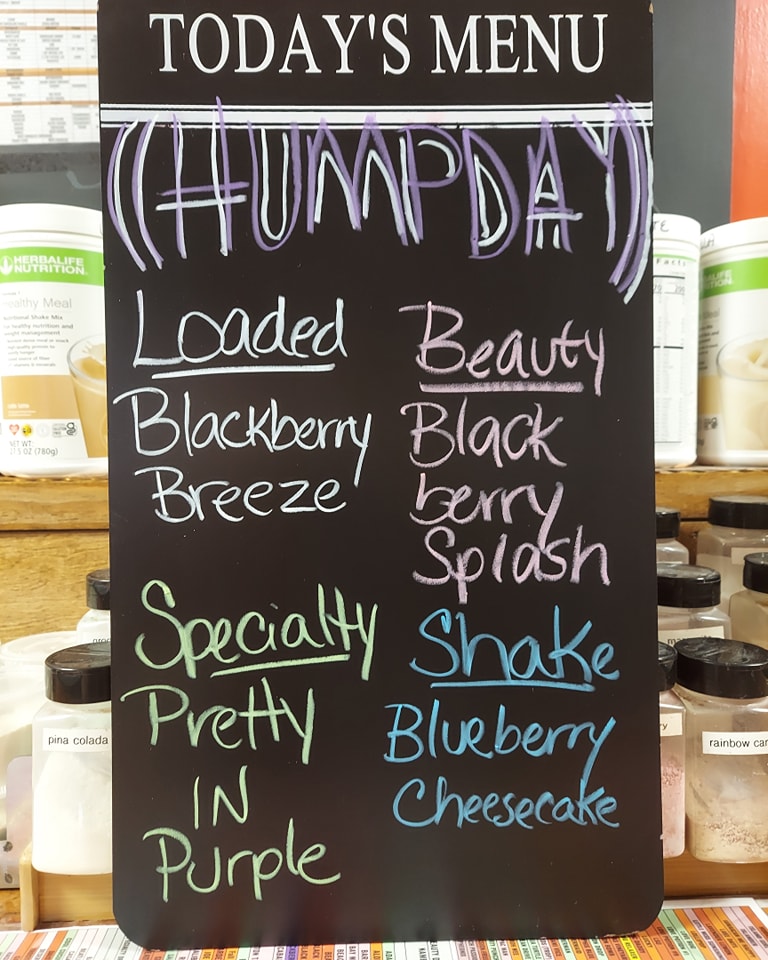 TODAY'S MENU
((HUMPDAY))
Loaded
Blackberry
Breeze
Beauty
Black
berry
Splash
Specialty
Pretty
IN
Purple
Shake
Blueberry
Cheesecake
HERBALIFE
NUTRITION
Healthy Meal
Nutritional Shake Mix
NET WT:
pina colada
Facts
rainbow